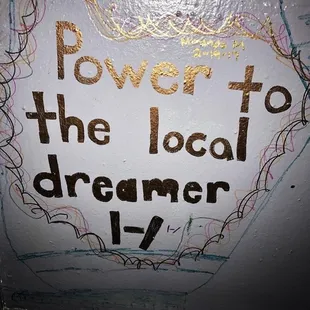 Power to
the local
dreamer
|-/
|-/